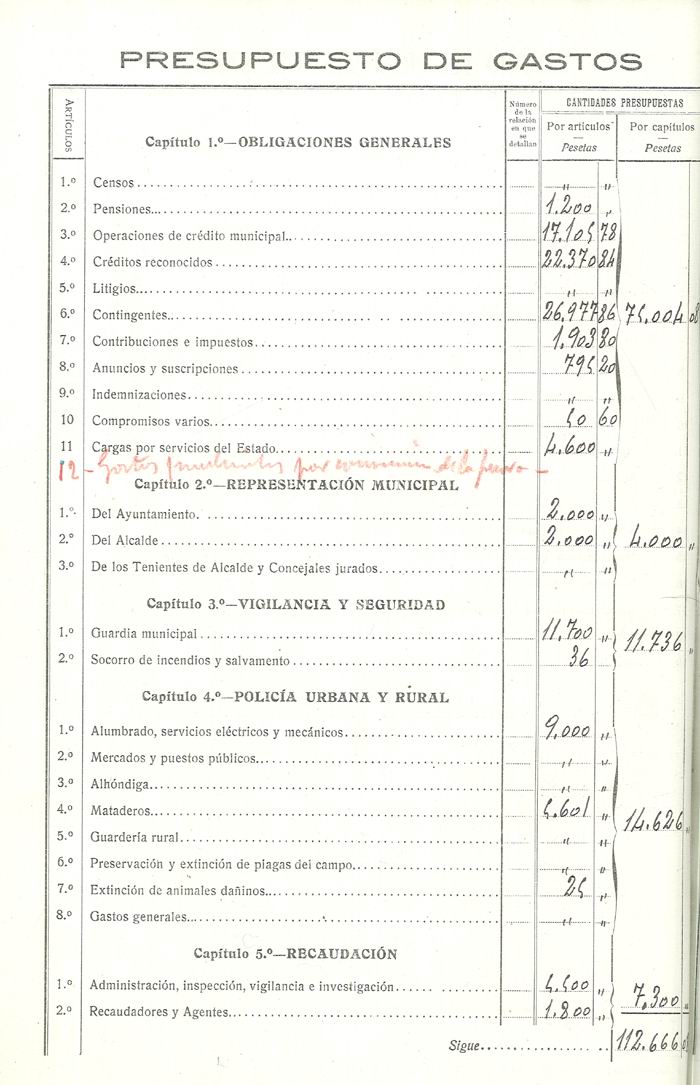 PRESUPUESTO DE GASTOS
ARTÍCULOS
Número de la relación en que se detallan
CANTIDADES PRESUPUESTAS
Por artículos Por capítulos
Pesetas Pesetas
Capítulo 1.º—OBLIGACIONES GENERALES
1.º Censos " "
2.º Pensiones 1.200 "
3.º Operaciones de crédito municipal 17.105 78
4.º Créditos reconocidos 22.370 84
5.º Litigios " "
6.º Contingentes 26.977 86 75.004 08
7.º Contribuciones e impuestos 1.903 80
8.º Anuncios y suscripciones 795 20
9.º Indemnizaciones " "
10 Compromisos varios 50 60
11 Cargas por servicios del Estado 4.600 "
12 - Gastos por de la -
Capítulo 2.º—REPRESENTACIÓN MUNICIPAL
1.º Del Ayuntamiento 2.000 "
2.º Del Alcalde 2.000 " 4.000 "
3.º De los Tenientes de Alcalde y Concejales jurados " "
Capítulo 3.º—VIGILANCIA Y SEGURIDAD
1.º Guardia municipal 11.700 " 11.736 "
2.º Socorro de incendios y salvamento 36
Capítulo 4.º—POLICÍA URBANA Y RURAL
1.º Alumbrado, servicios eléctricos y mecánicos 9.000 "
2.º Mercados y puestos públicos " "
3.º Alhóndiga " "
4.º Mataderos 5.601 " 14.626 "
5.º Guardería rural " "
6.º Preservación y extinción de plagas del campo " "
7.º Extinción de animales dañinos 25 "
8.º Gastos generales " "
Capítulo 5.º—RECAUDACIÓN
1.º Administración, inspección, vigilancia e investigación 5.500 " 7.300 "
2.º Recaudadores y Agentes 1.800 "
Sigue 112.666